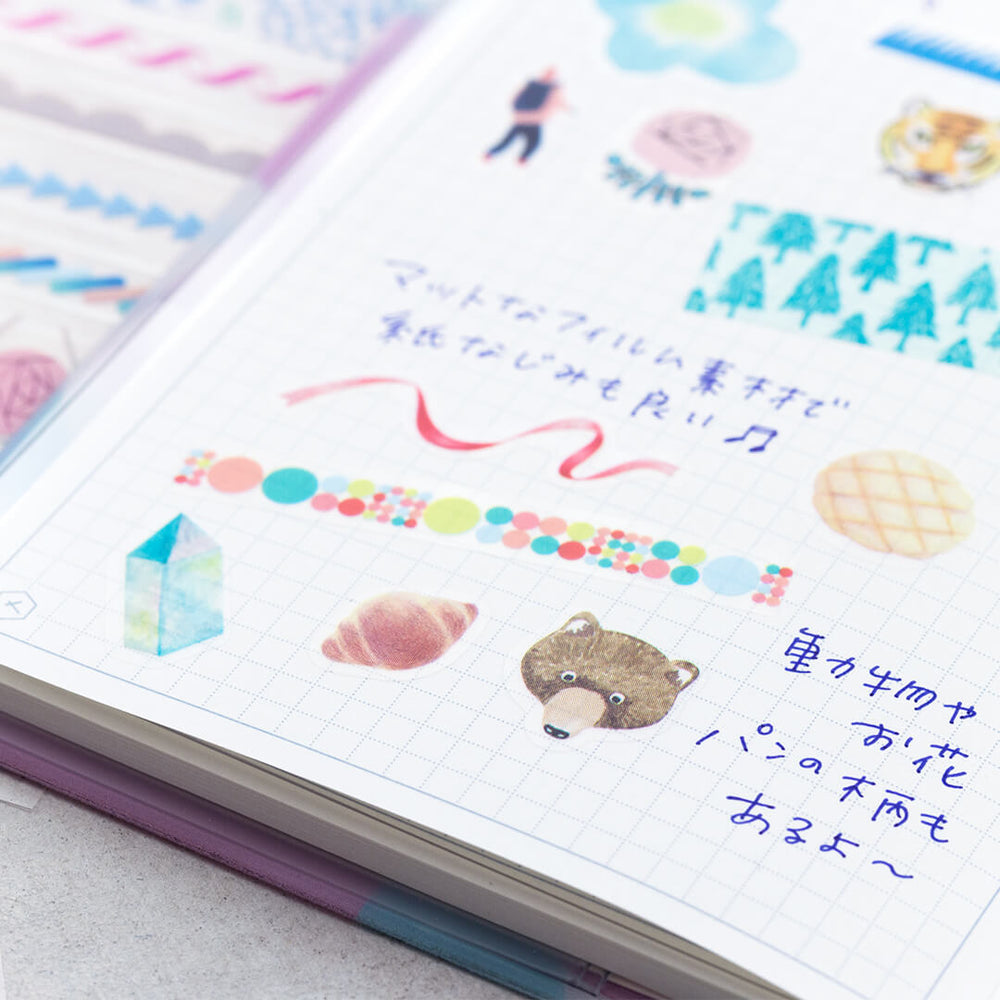 マットなフィルム素材で
紙なじみも良い♫
動物や
お花
パンの柄も
あるよ〜